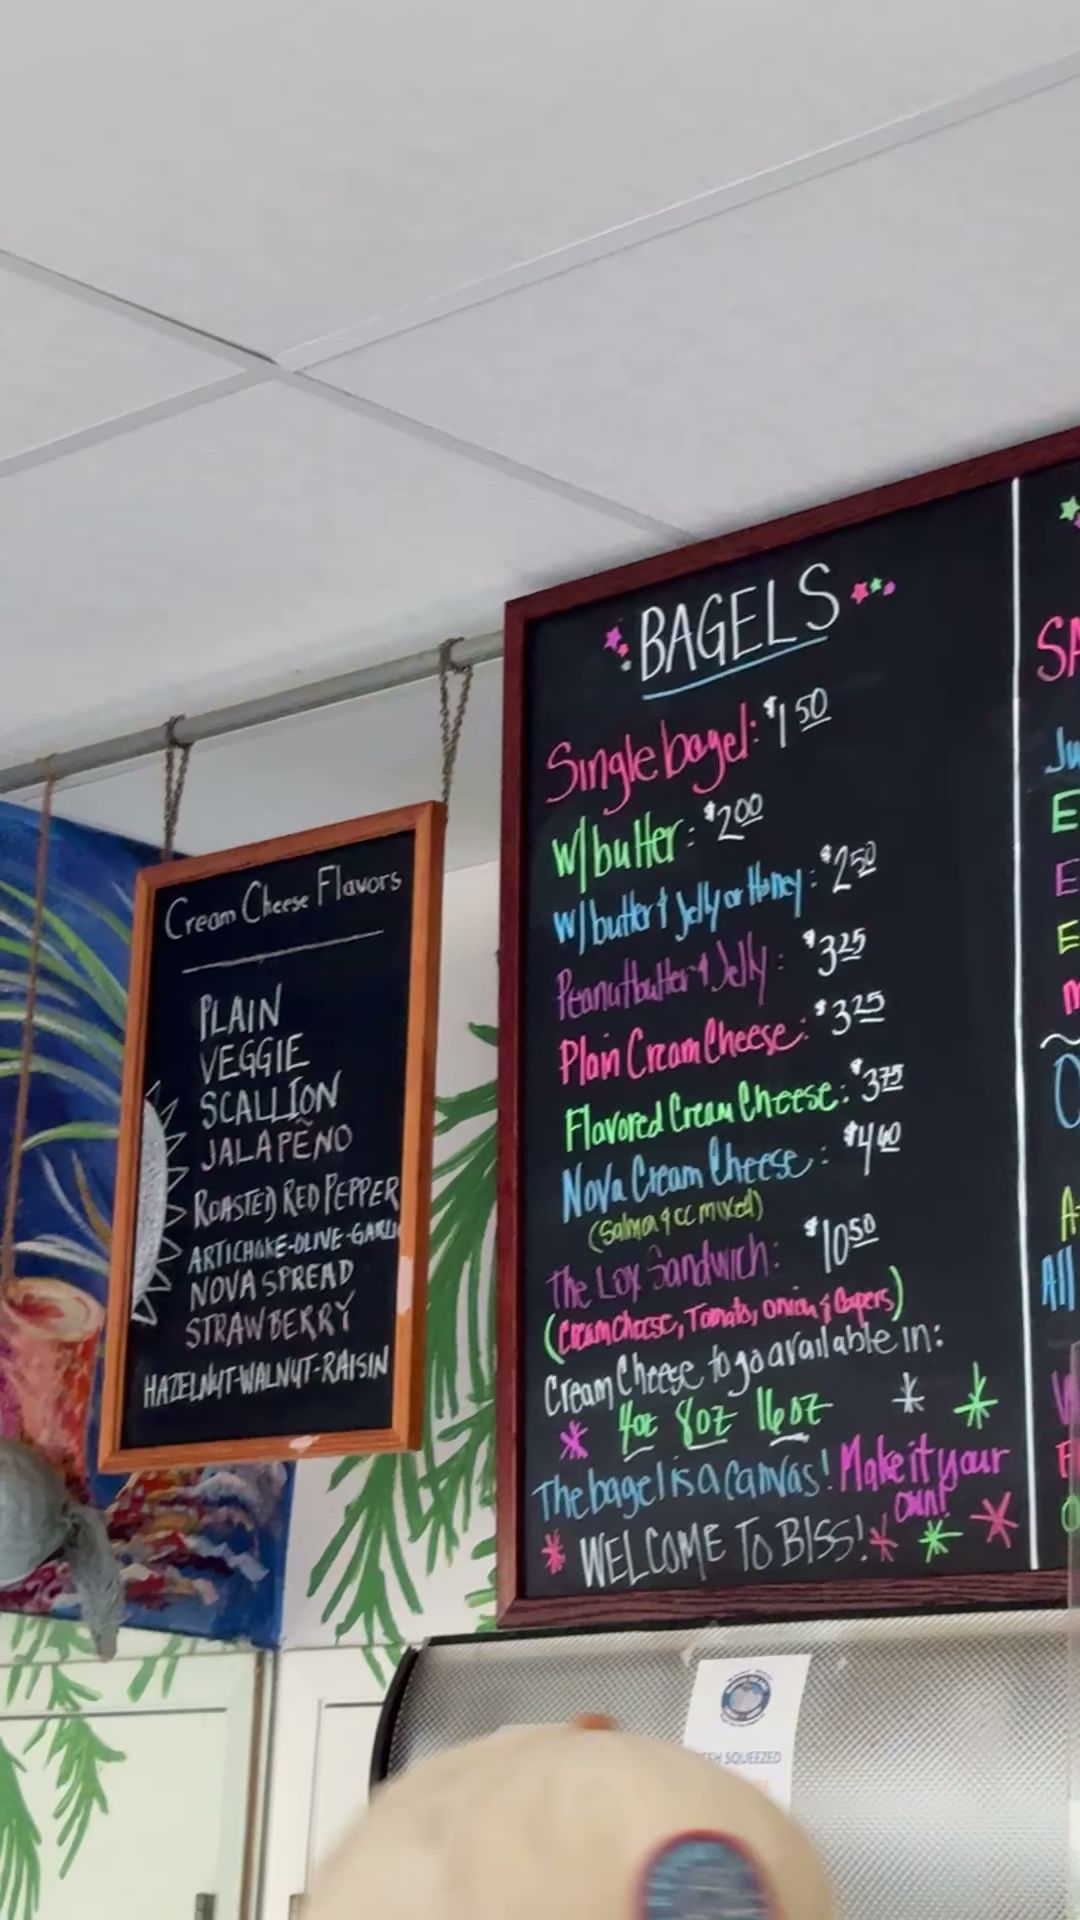 Cream Cheese Flavors
PLAIN
VEGGIE
SCALLION
JALAPEÑO
ROASTED RED PEPPER
ARTICHOKE-OLIVE-GARLIC
NOVA SPREAD
STRAWBERRY
HAZELNUT-WALNUT-RAISIN
BAGELS
Single bagel: $1.50
W/ butter: $2.00
W/ butter & Jelly or Honey: $2.50
Peanutbutter & Jelly: $3.25
Plain Cream Cheese: $3.25
Flavored Cream Cheese: $3.75
Nova Cream Cheese:
(Salmon & cc mixed)
The Lox Sandwich: $10.50
(creamcheese, Tomato, onion & Capers)
Cream Cheese to go available in:
4oz 8oz 16oz
The bagel is a canvas! Make it your
own!
WELCOME TO BISS!
SQUEEZED